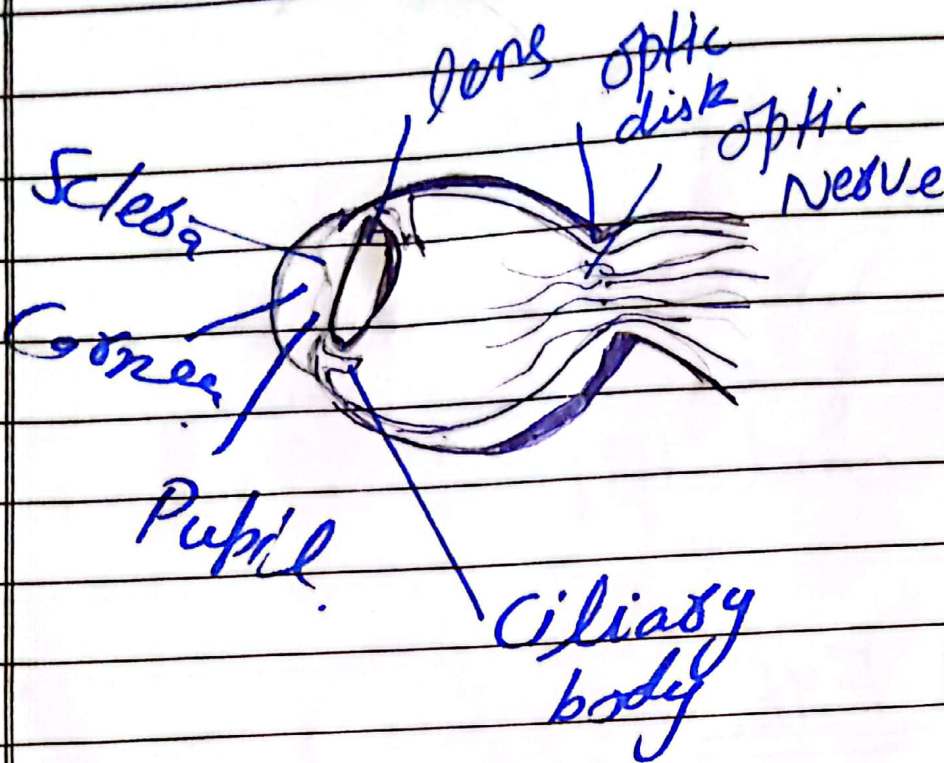 lens
optic
disk
optic
Nerve
Sclera
Cornea
Pupil
Ciliary
body